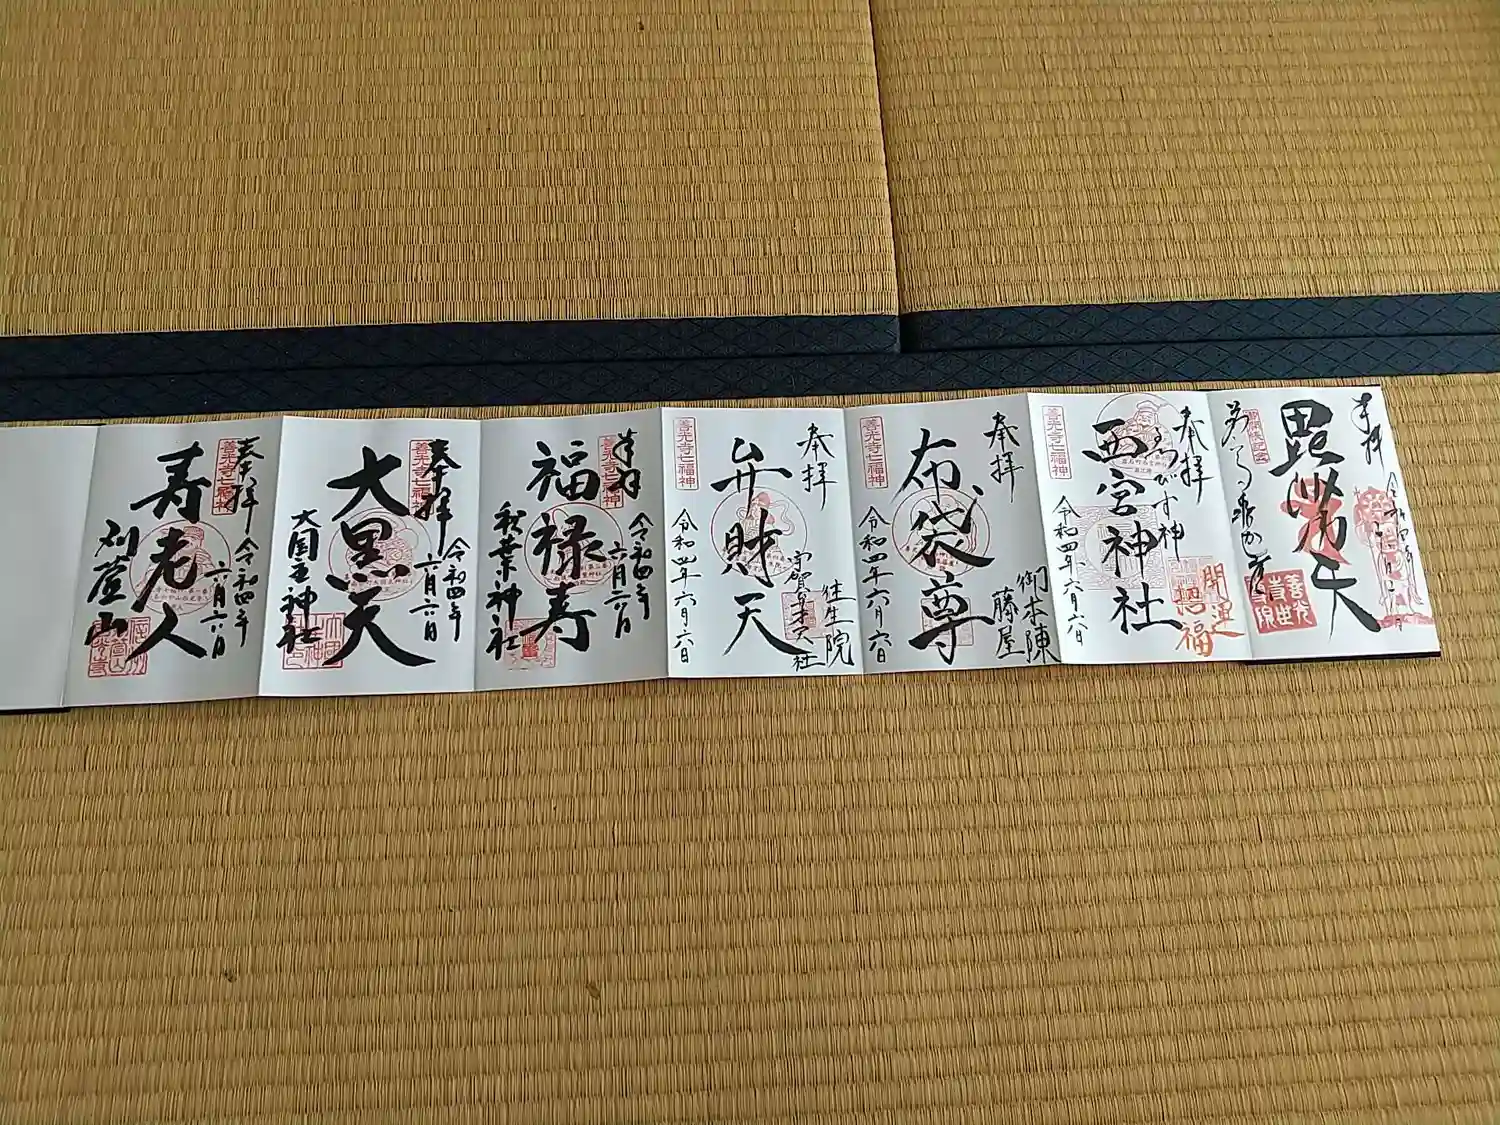 寿老人
奉拝
令和四年
六月六日
刈萱山
善光寺七福神
大黒天
奉拝
令和四年
六月六日
大国主神社
善光寺七福神
福禄寿
奉拝
令和四年
六月六日
秋葉神社
善光寺七福神
弁財天
奉拝
令和四年六月六日
往生院
善光寺七福神
布袋尊
奉拝
令和四年六月六日
御本陳
藤屋
善光寺七福神
西宮神社
奉拝
えびす神
令和四年六月六日
開運
招福
善光寺七福神
毘沙門天
奉拝